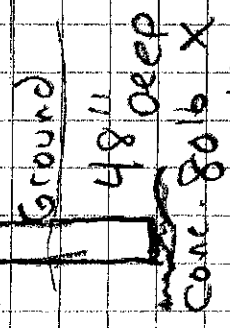 Ground
48"
Deep
Conc. 80lb X